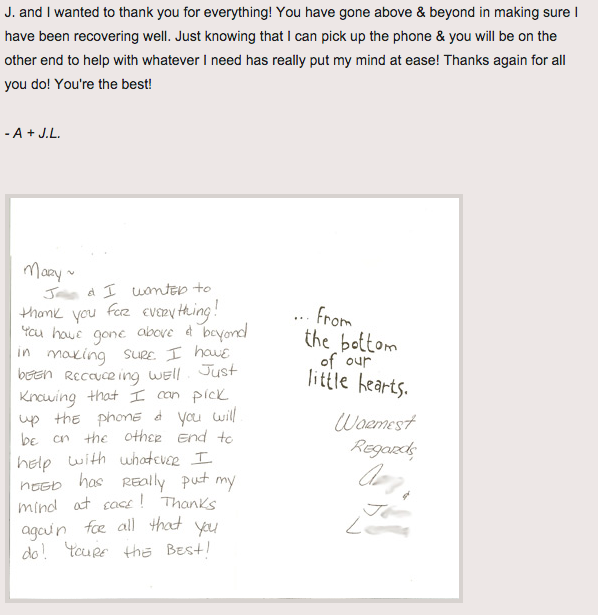 J. and I wanted to thank you for everything! You have gone above & beyond in making sure I
have been recovering well. Just knowing that I can pick up the phone & you will be on the
other end to help with whatever I need has really put my mind at ease! Thanks again for all
you do! You're the best!
- A + J.L.
Mary ~
J & I wanted to
thank you for everything!
You have gone above & beyond
in making sure I have
been recovering well. Just
knowing that I can pick
up the phone & you will
be on the other end to
help with whatever I
need has really put my
mind at ease! Thanks
again for all that you
do! You're the Best!
... from
the bottom
of our
little hearts.
Warmest
Regards,
A
& J
L